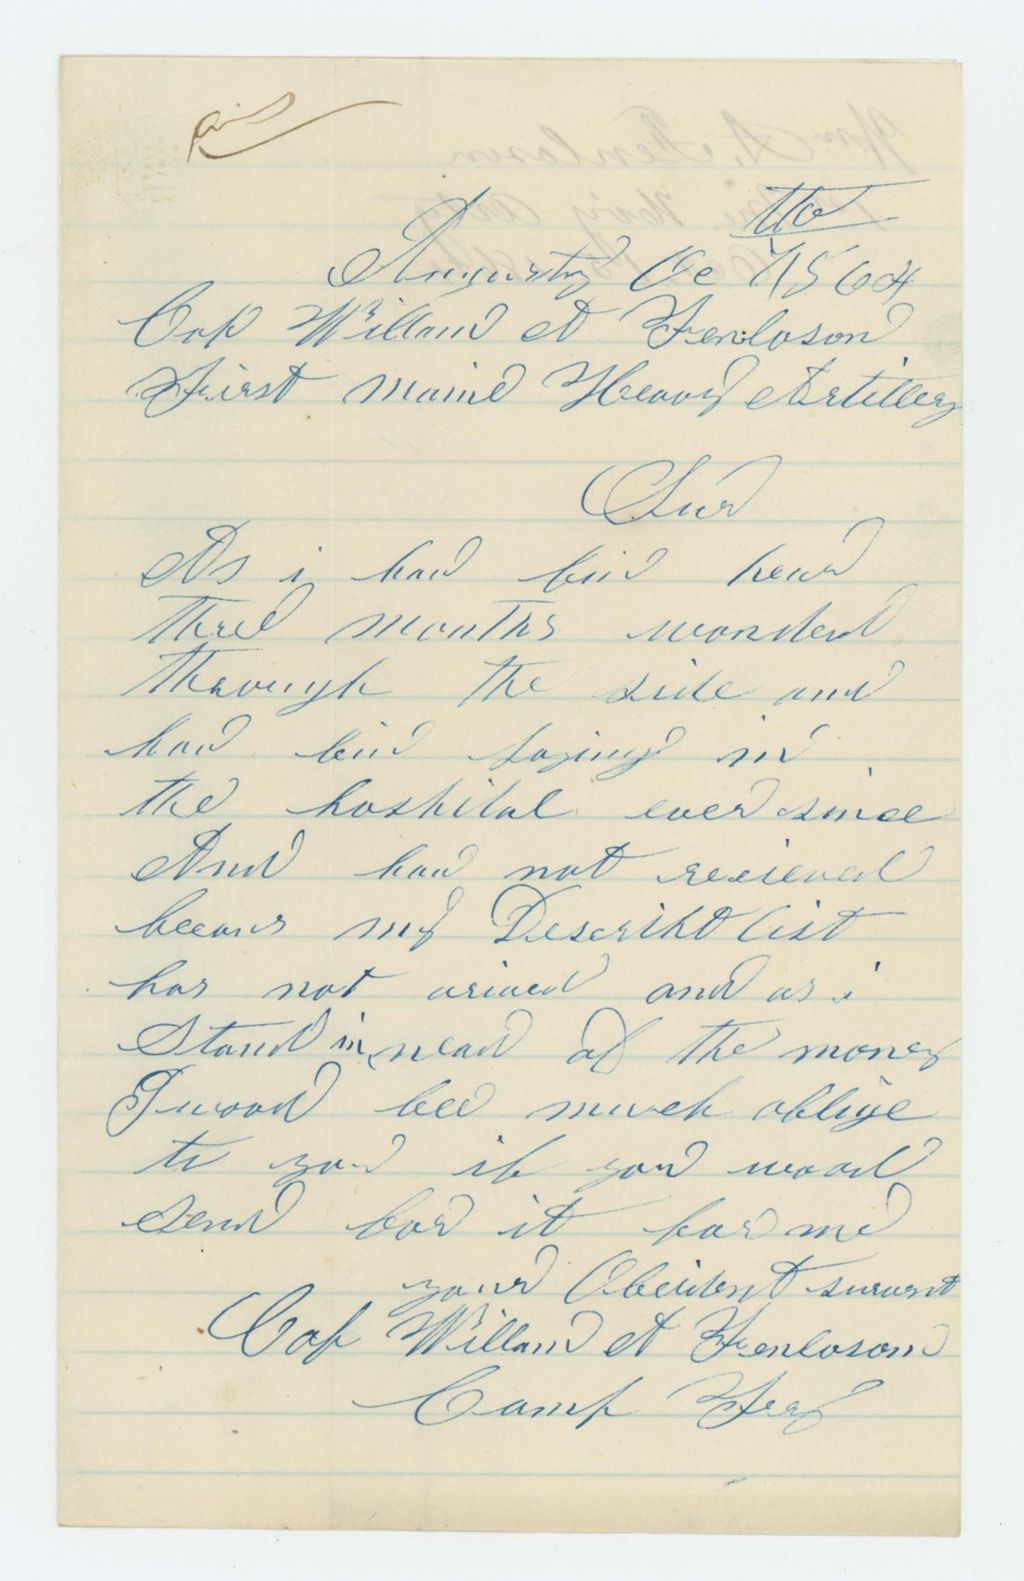 Augusty Oc 7 1864
Cap Willam A Fenlason
First Maine Heavy Artillery
Sur
As i have bin hear
three months wonded
through the side and
have bin laying in
the hospital ever since
And have not recieved
becaus my Descript list
has not arived and as i
stand in nead of the money
I wood bee much oblige
to you if you wood
send for it for me
your Obeident survent
Cap Willam A Fenlason
Camp